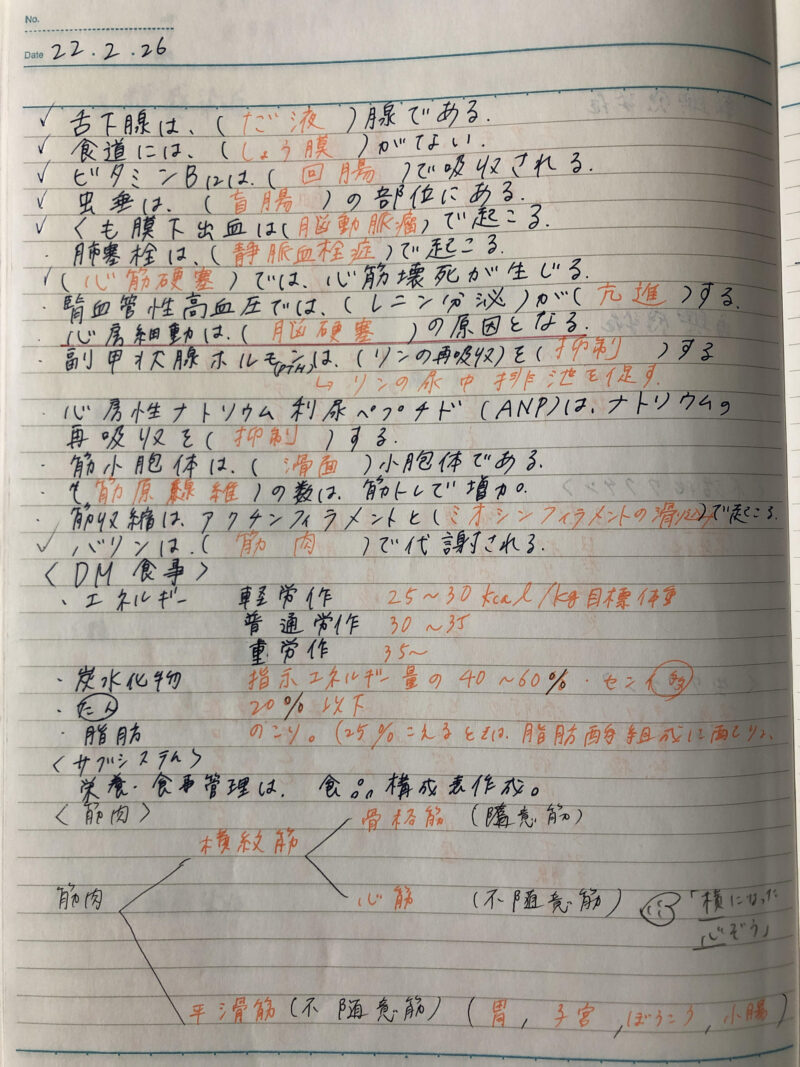 No.
Date 22.2.26
✓ 舌下腺は、(だ液)腺である。
✓ 食道には、(しょう膜)がない。
✓ ビタミンB12は、(回腸)で吸収される。
✓ 虫垂は、(盲腸)の部位にある。
✓ くも膜下出血は(脳動脈瘤)で起こる。
・肺塞栓は、(静脈血栓症)で起こる。
✓(心筋硬塞)では、心筋壊死が生じる。
・腎血管性高血圧では、(レニン分泌)が(亢進)する。
・心房細動は、(脳硬塞)の原因となる。
・副甲状腺ホルモン(PTH)は、(リンの再吸収)を(抑制)する
↳リンの尿中排泄を促す。
・心房性ナトリウム利尿ペプチド(ANP)は、ナトリウムの
再吸収を(抑制)する。
・筋小胞体は、(滑面)小胞体である。
・(筋原線維)の数は、筋トレで増加。
・筋収縮は、アクチンフィラメントと(ミオシンフィラメントの滑り込み)で起こる。
✓ バリンは、(筋肉)で代謝される。
〈DM 食事〉
・エネルギー 軽労作 25〜30 kcal/kg目標体重
普通労作 30〜35
重労作 35〜
・炭水化物 指示エネルギー量の40〜60%・センイ多
・たん 20%以下
・脂肪 のこり。(25%こえるときは、脂肪酸組成に配りょ。
〈サブシステム〉
栄養・食事管理は、食品構成表作成。
〈筋肉〉
骨格筋 (随意筋)
横紋筋
筋肉 心筋 (不随意筋) 「横になった
心ぞう」
平滑筋 (不随意筋) (胃, 子宮, ぼうこう, 小腸)